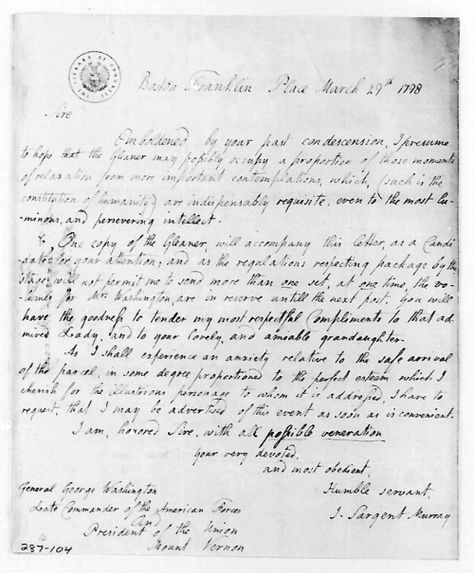 THE LIBRARY OF CONGRESS
Boston Franklin Place March 29th 1798
Sire
Emboldened by your past condescension, I presume
to hope that the Gleaner may possibly occupy a proportion of those moments
of relaxation from more important contemplations, which, (such is the
constitution of humanity) are indispensably requisite, even to the most lu-
minous, and persevering intellect.
One copy of the Gleaner, will accompany this letter, as a Candi-
date for your attention, and as the regulations respecting package by the
stage, will not permit me to send more than one set, at one time, the vo-
lumes for Mrs Washington are in reserve untill the next post. You will
have the goodness to tender my most respectful Compliments to that ad-
mired Lady, and to your lovely, and amiable grandaughter.
As I shall experience an anxiety relative to the safe arrival
of the parcel, in some degree proportioned to the perfect esteem which I
cherish for the illustrious personage to whom it is addressed, I have to
request, that I may be advertised of this event as soon as is convenient.
I am, honored Sire, with all possible veneration
your very devoted,
and most obedient,
Humble servant,
J. Sargent Murray
General George Washington
Late Commander of the American Forces
And
President of the Union
Mount Vernon
287-104